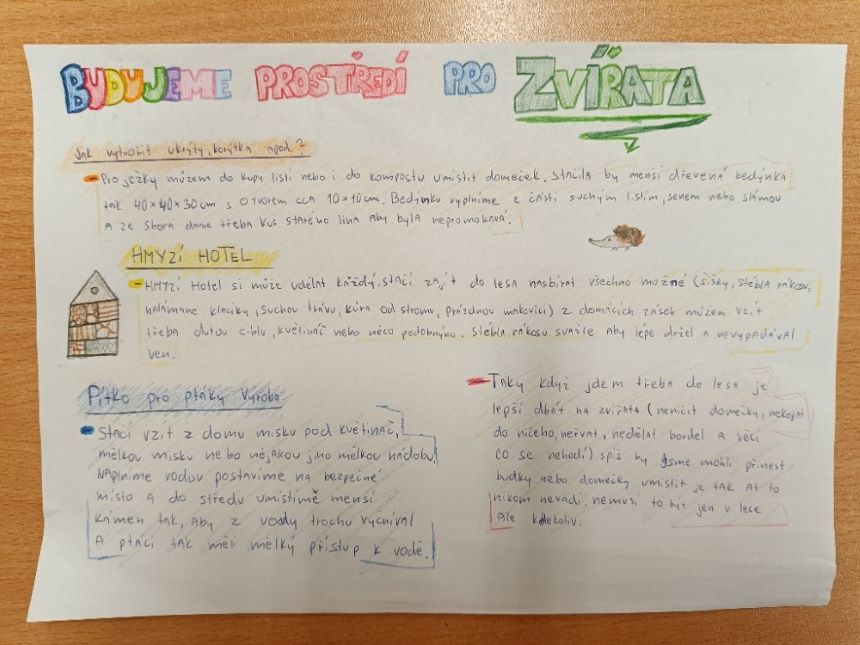 BUDUJEME PROSTŘEDÍ PRO ZVÍŘATA
Jak vytvořit úkryty, korýtka apod?
Pro ježky můžem do kupy listí nebo i do kompostu umístit domeček. Stačila by menší dřevená bedýnka
tak 40x40x30cm s otvorem cca 10x10cm. Bedýnku vyplníme z části suchým listím, senem nebo slámou
a ze shora dáme třeba kus starého lina aby byla nepromokavá.
HMYZÍ HOTEL
HMYZÍ Hotel si může udělat každý, stačí zajít do lesa nasbírat všechno možné (šišky, stébla rákosu,
nalámané klacíky, suchou trávu, kůra od stromu, prázdnou makovici) z domácích zásob můžem vzít
třeba dutou cihlu, květináč nebo něco podobnýho. Stébla rákosu svažte aby lépe držel a nevypadával
ven.
Pítko pro ptáky výroba
Stačí vzít z domu misku pod květináč,
mělkou misku nebo nějakou jíno mělkou nádobu.
Naplníme vodou postavíme na bezpečné
místo a do středu umístímě menší
kámen tak, aby z vody trochu vyčníval
A ptáci tak měli mělký přístup k vodě.
Taky když jdem třeba do lesa je
lepší dbát na zvířata (neničit domečky, nekopat
do ničeho, neřvat, nedělat bordel a věci
co se nehodí) spíš by jsme mohli přinest
budky nebo domečky umístit je tak At to
nikom nevadí, nemusí to být jen v lese
Ale kdekoliv.